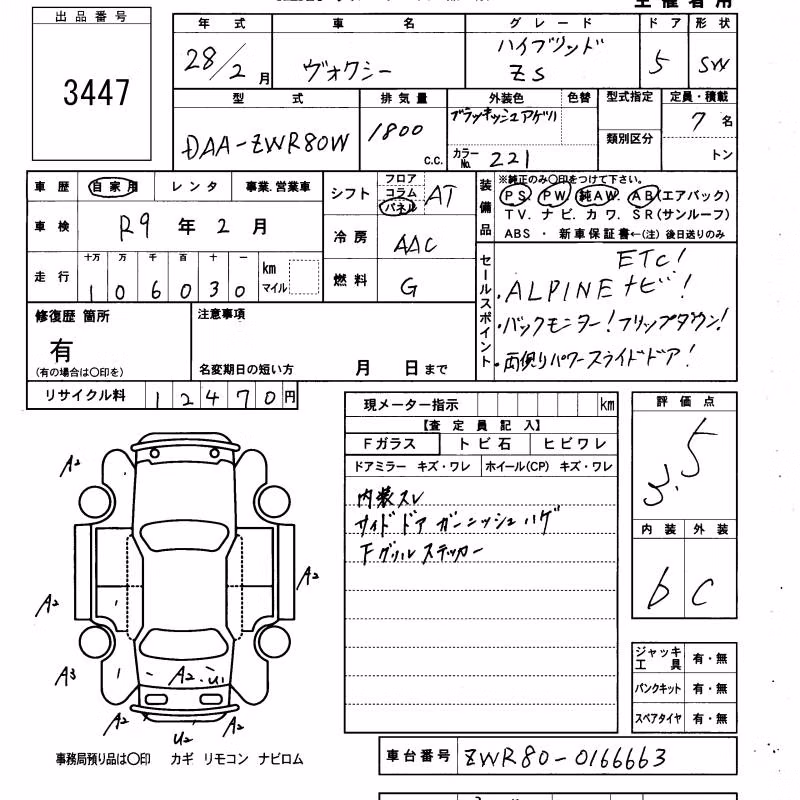 出品番号
3447
年式 車名 グレード ドア 形状
28/2月 ヴォクシー ハイブリッド ZS 5 SW
型式 排気量 外装色 色替 型式指定 定員・積載
DAA-ZWR80W 1800 c.c. ブラッキッシュアゲハ 類別区分 7名
カラーNo. 221 トン
車歴 自家用 レンタ 事業.営業車
シフト フロア コラム パネル AT
装備品 ※純正のみ○印をつけて下さい。
PS. PW. 純AW. AB(エアバック)
TV. ナビ. カワ. SR(サンルーフ)
ABS ・ 新車保証書←(注) 後日送りのみ
車検 R9年2月
冷房 AAC
走行 十万 万 千 百 十 一 km マイル
106030
燃料 G
セールスポイント
ETC!
・ALPINEナビ!
・バックモニター!フリップダウン!
・両側パワースライドドア!
修復歴 箇所
有
(有の場合は○印を)
注意事項
名変期日の短い方 月 日まで
リサイクル料 12470円
現メーター指示 km
【査定員記入】
Fガラス トビ石 ヒビワレ
ドアミラー キズ・ワレ ホイール(CP) キズ・ワレ
内装スレ
サイドドアガーニッシュハゲ
Fグリルステッカー
評価点
3.5
内装 外装
b C
A2
A2
A2
A3
A2 . U1
A2
A2
U2
ジャッキ工具 有・無
パンクキット 有・無
スペアタイヤ 有・無
事務局預り品は○印 カギ リモコン ナビロム
車台番号 ZWR80-0166663